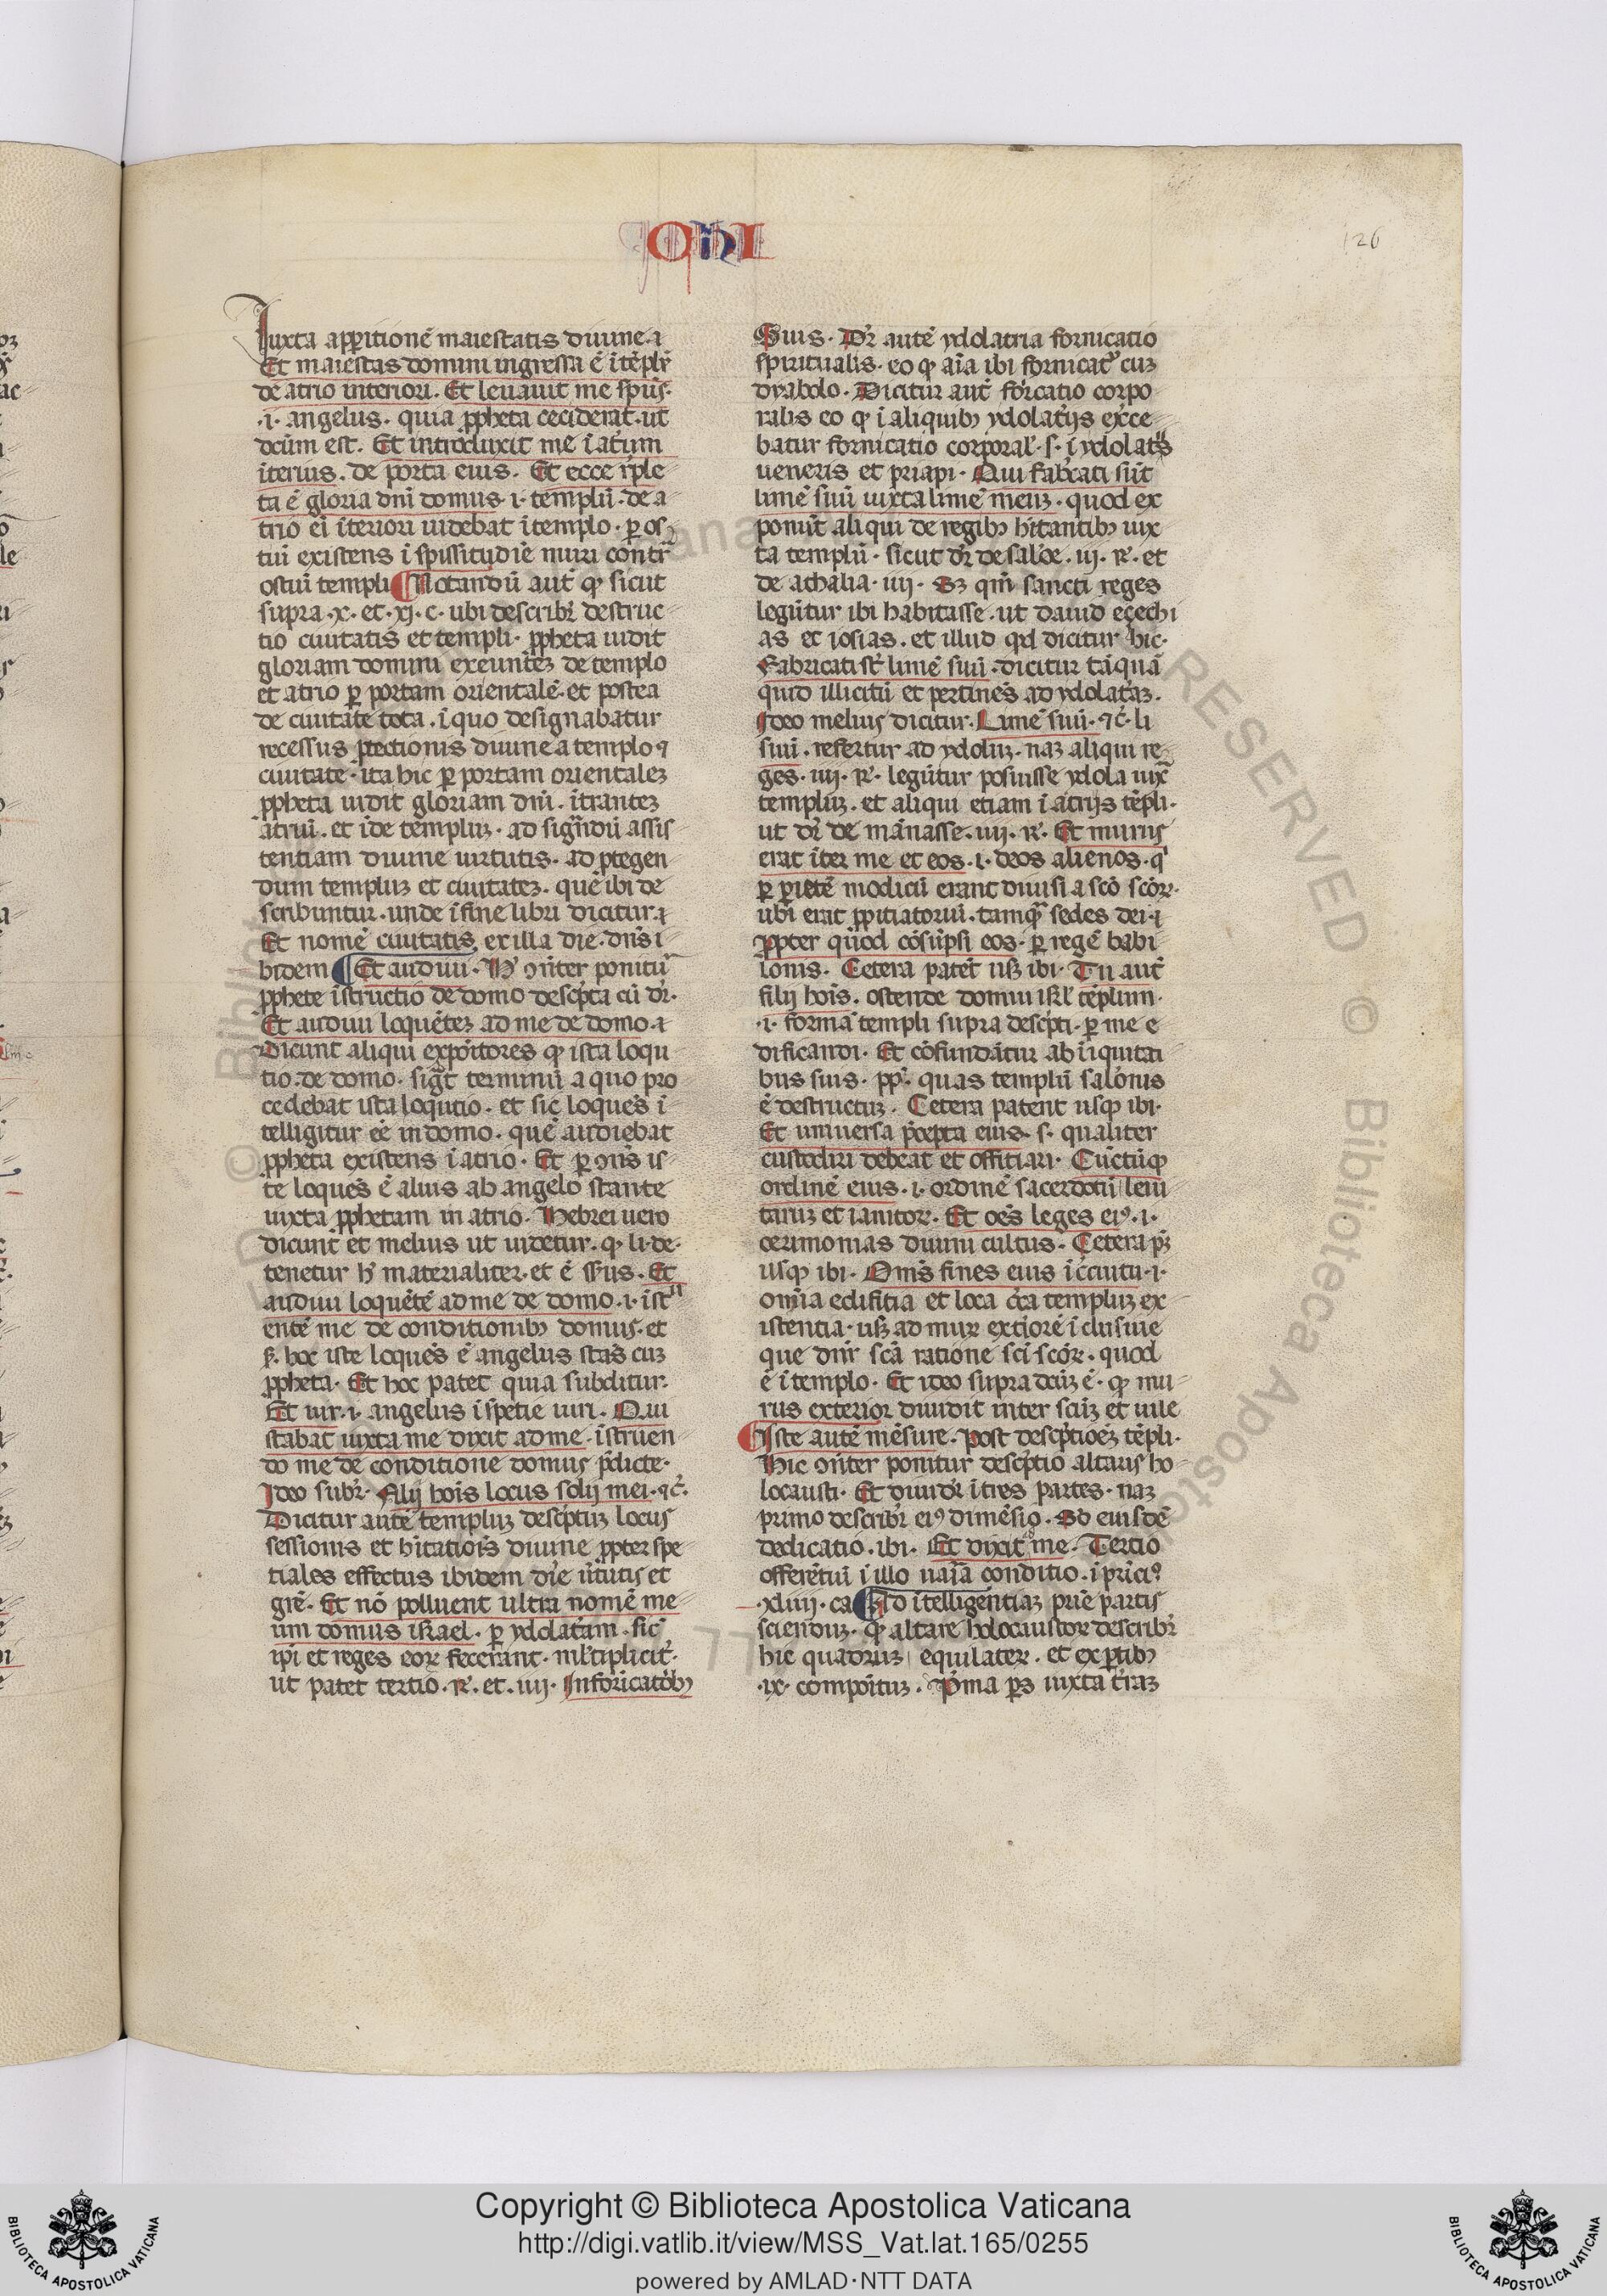 126
Iuxta apparitionē maiestatis diuine. ⁊
Et maiestas domini ingressa ē ī tēplū
de atrio interiori. Et leuauit me spūs.
.i. angelus. quia ꝓpheta ceciderat. ut
dcūm est. Et introduxit me ī atrium
īterius. de porta eius. Et ecce īple
ta ē gloria dnī domus .i. templū. de a
trio ei īteriori uidebat ī templo. ꝑ os
tiū existens ī spissitudīe muri contra
ostiū templi Notandū aūt ꝙ sicut
supra .x. et .xj. c. ubi describit̄ destruc
tio ciuitatis et templi. ꝓpheta uidit
gloriam domini exeuntēz de templo
et atrio ꝑ portam orientalē. et postea
de ciuitate tota. ī quo designabatur
recessus ꝓtectionis diuine a templo ⁊
ciuitate. ita hic ꝑ portam orientalez
ꝓpheta uidit gloriam dnī. ītrantez
atriū. et īde templuz. ad signandū assis
tentiam diuine uirtutis. ad ꝓtegen
dum templuz et ciuitatez. que ibi de
scribuntur. unde ī fine libri dicitur. ⁊
Et nomē ciuitatis ex illa die. dn̄s i
bidem Et audiui. Hic ꝯn̄ter ponitur
ꝓphete īstructio de domo descīpta cū dr̄.
Et audiui loquētez ad me de domo. ⁊
Dicunt aliqui expōitores ꝙ ista loqu
tio. de domo. sigt̄ terminū a quo pro
cedebat ista loqutio. et sic loquēs ī
telligitur eē in domo. quē audiebat
ꝓpheta existens ī atrio. Et ꝑ ꝯn̄s is
te loquēs ē alius ab angelo stante
iuxta ꝓphetam in atrio. Hebrei uero
dicunt et melius ut uidetur. ꝙ li. de.
tenetur h̄ materialiter. et ē sensus. Et
audiui loquētē ad me de domo. i. īstru
entē me de conditionibꝫ domus. et
ꝑ hoc iste loquēs ē angelus stās cuz
ꝓpheta. Et hoc patet quia subditur.
Et uir .i. angelus ī spetie uiri. Qui
stabat iuxta me dixit ad me. īstruen
do me de conditione domus p̄dicte.
Ideo subdr̄. Filij hoīs locus solij mei. ⁊c̄.
Dicitur autē templuz descīptuz locus
sessionis et hītatiois diuine ꝓpter spe
tiales effectus ibidem diē ūtutis et
grē. Et nō polluent ultra nomē me
um domus israel. ꝑ ydolatriam. sic
ipi et reges eoꝝ fecerant. ml̄tiplicit̄.
ut patet tertio. R. et. iiij. In fornicatōibꝫ
Suis. Dr̄ autē ydolatria fornicatio
spiritualis. eo ꝙ aīa ibi fornicat̄ cuz
dyabolo. Dicitur aūt fornicatio corpo
ralis eo ꝙ ī aliquibꝫ ydolatrijs exerce
batur fornicatio corporal̄. s. ī ydolatris
ueneris et priapi. Qui fabricati sūt
limē suū iuxta limē meuz. quod ex
ponūt aliqui de regibꝫ hītantibꝫ iux
ta templū. sicut dr̄ de salōe. iij. R. et
de athalia. iiij. Sꝫ qm̄ sancti reges
legūtur ibi habitasse. ut dauid eçechi
as et iosias. et illud qd dicitur hic.
Fabricati st̄ limē suū. dicitur tāquā
quid illicitū et pertinēs ad ydolatriaz.
Ideo melius dicitur. Limē suū. ⁊c̄. li
suū. refertur ad ydoluz. naz aliqui re
ges. iiij. R. legūtur posuisse ydola iuxᵃ
templuz. et aliqui etiam ī atrijs tēpli.
ut dr̄ de mānasse. iiij. R. Et murus
erat īter me et eos. i. deos alienos. qⁱ
ꝑ pietē modicū erant diuisi a scō scōꝝ.
ubi erat ꝓpitiatoriū. tamqᵃ sedes dei. ⁊
ꝓpter quod cōsūpsi eos. ꝑ regē babi
lonis. Cetera patēt usꝫ ibi. Tu aūt
filij hois. ostende domui isrl̄ tēplum.
.i. formā templi supra descīpti. ꝑ me e
dificandi. Et cōfundātur ab iniquitati
bus suis. pp̄. quas templū salōnis
ē destructuz. Cetera patent usꝙ ibi.
Et uniuersa p̄cepta eius. s. qualiter
custodiri debeat et offitiari. Cūctūꝙ
ordinē eius. i. ordinē sacerdotū leui
taruz et ianitoꝝ. Et oēs leges eiꝰ. i.
cerimonias diuini cultus. Cetera pꝫ
usꝙ ibi. Omīs fines eius ī circuitu. i.
omīa edifitia et loca circa templuz ex
istentia. usꝫ ad muꝝ extiorē īclusiue
que dnr̄ scā ratione scī scōꝝ. quod
ē ī templo. Et ideo supra dcūz ē. ꝙ mu
rus exterior diuidit inter scūz et uile
Iste autē mēsure. Post descīptioēz tēpli.
Hic ꝯn̄ter ponitur descīptio altaris ho
locausti. Et diuidr̄ ī tres partes. naz
primo describr̄ eiꝰ dimēsio. Sd̄ eiusdē
dedicatio. ibi. Et dixit ad me. Tertio
offerētiū ī illo uaria conditio. ī prīciᵒ
.xliiij. ca Ad ītelligentiaz prīe partis
sciendūz. ꝙ altare holocaustoꝝ describr̄
hic quadruz equilater. et ex ꝑtibꝫ
.ix. compōituz. Pīma pꝫ iuxta t̄raz
Copyright © Biblioteca Apostolica Vaticana
http://digi.vatlib.it/view/MSS_Vat.lat.165/0255
powered by AMLAD·NTT DATA